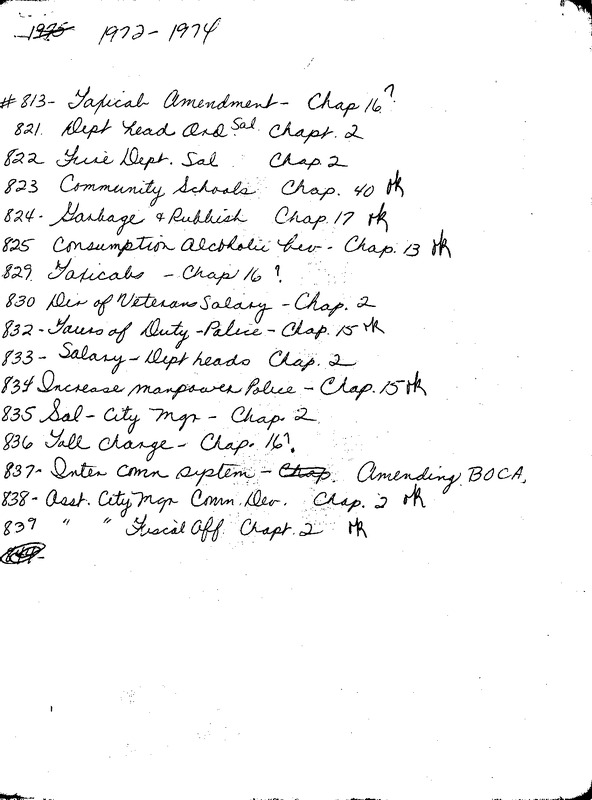 1975 1972-1974
#813- Taxicab Amendment- Chap 16?
821. Dept head Ord Sal. Chapt. 2
822 Fire Dept. Sal Chap. 2
823 Community Schools Chap. 40 ok
824- Garbage & Rubbish Chap. 17 ok
825 Consumption Alcoholic bev- Chap. 13 ok
829 Taxicabs - Chap 16 ?
830 Dir of Veterans Salary - Chap. 2
832- Tours of Duty-Police- Chap. 15 ok
833- Salary-Dept heads Chap. 2
834 Increase manpower Police - Chap. 15 ok
835 Sal- City Mgr - Chap. 2
836 Toll change- Chap. 16?
837- Inter comn system - Chap. Amending BOCA,
838- Asst. City Mgr Comm. Dev. Chap. 2 ok
839 " " Fiscal Off. Chapt. 2 ok